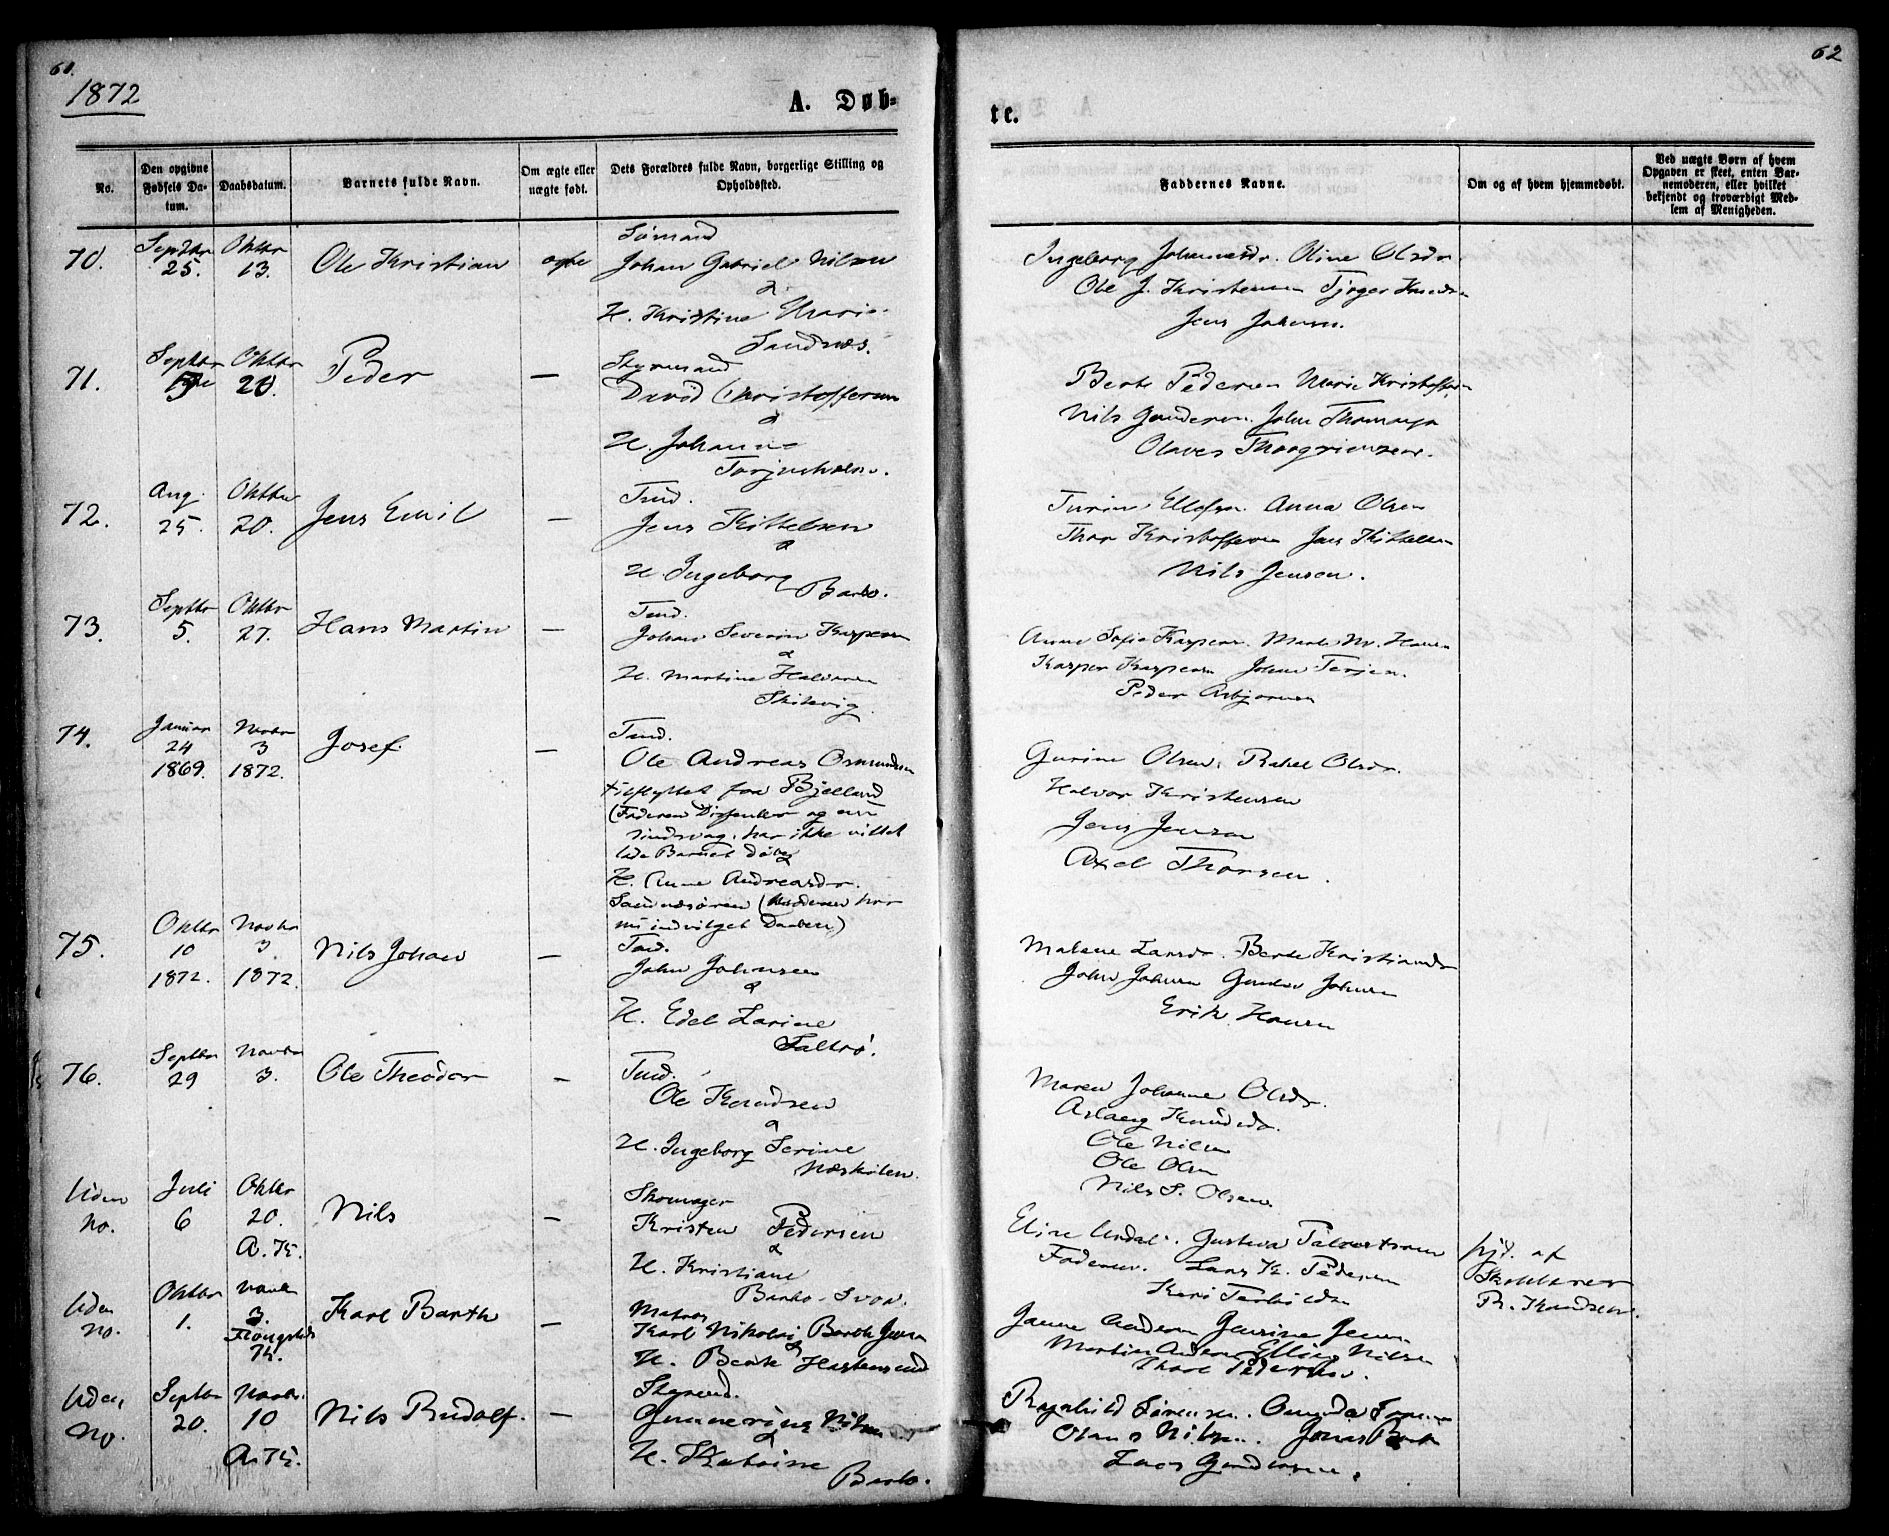 61.
62
1872
A. Døb-
te.
No.
Den opgivne Fødsels Da-tum.
Daabsdatum.
Barnets fulde Navn.
Om ægte eller uægte født.
Dets Forældres fulde Navn, borgerlige Stilling og Opholdssted.
Faddernes Navne.
Om og af hvem hjemmedøbt.
Ved uægte Børn af hvem Opgaven er skeet, enten Bar-nemoderen, eller hvilket bekjendt og troværdigt Med-lem af Menigheden.
70.
Septbr 25.
Oktbr 13.
Ole Kristian
ægte
Sømand
Johan Gabriel Nilsen
&
H. Kristine Marie
Sandnæs.
Ingeborg Johannesdr. Oline Olsdr.
Ole J. Kristensen Tjøger Knudsen
Jens Johnsen.
71.
Septbr
Oktbr 20.
Peder
—
Styrmand
David Christoffersen
&
H. Johanne
Torjusholm.
Berte Pedersen Marie Kristoffersen
Nils Gundersen. John Thomasen
Olaves Thorgrimsen.
72.
Aug. 25.
Oktbr 20.
Jens Emil
—
Tmd.
Jens Kittelsen
&
H. Ingeborg
Barbo.
Turine Ellefsen Anna Olsen
Thor Kristoffersen Jens Kittelsen
Nils Jensen.
73.
Septbr 5.
Oktbr 27.
Hans Martin
—
Tmd.
Johan Severin Kaspersen
&
H. Martine Halvorsen
Skilevig.
Anne Sofie Kaspersen. Marte M. Hansen
Kasper Kaspersen Johan Terjesen.
Peder Asbjørnsen
74.
Januar 24 1869.
Novbr 3 1872.
Josef
—
Tmd.
Ole Andreas Osmundsen
tilflyttet fra Bjelland
(Faderen Dissenter og en
sindsvag, har ikke villet
lade Barnet døbe)
&
H. Anne Andreasdr.
(Moderen har
nu indvilget Daaben)
Gurine Olsen, Rakel Olsdr.
Halvor Kristensen
Jens Jensen
Axel Thorsen.
75.
Oktbr 10 1872.
Novbr 3. 1872.
Nils Johan
—
Tmd.
John Johnsen
&
H. Edel Larine
Saltrø.
Malene Larsdr. Berte Kristiansdr
John Johnsen Gunder Johnsen
Erik Hansen
76.
Septbr 29
Novbr 3.
Ole Theodor
—
Tmd.
Ole Knudsen
&
H. Ingeborg Serine
Næskilen.
Maren Johanne Olsdr.
Aslaug Knudsdr.
Ole Nilsen
Ole Olsen
Nils S. Olsen.
Uden No.
Juli 6
Oktbr 20. A.K.
Nils
—
Skomager
Kristen Pedersen
&
H. Kristiane
Barbo
Eline Undal. Gustava Palvestrøm
Faderen. Lars K. Pedersen
Keri Terkildsen
hjd. af
Skolelærer
R. Knudsen.
Uden No.
Oktbr 1.
Novbr 3. K.
Karl Barth
—
Matros
Karl Nikolai Barth Jensen
&
H. Berte Hastensund
Janne Andersen Gurine Jensen
Martin Andersen Elling Nilsen
Tharl Pedersen.
Uden No.
Septbr 20.
Novbr. 10 A.K.
Nils Rudolf.
—
Styrmd.
Gunnerius Nilsen
&
H. Katrine
Barbo.
Ragnhild Sørensen. Amanda
Nilsen. Jonas
Lars Gundersen.